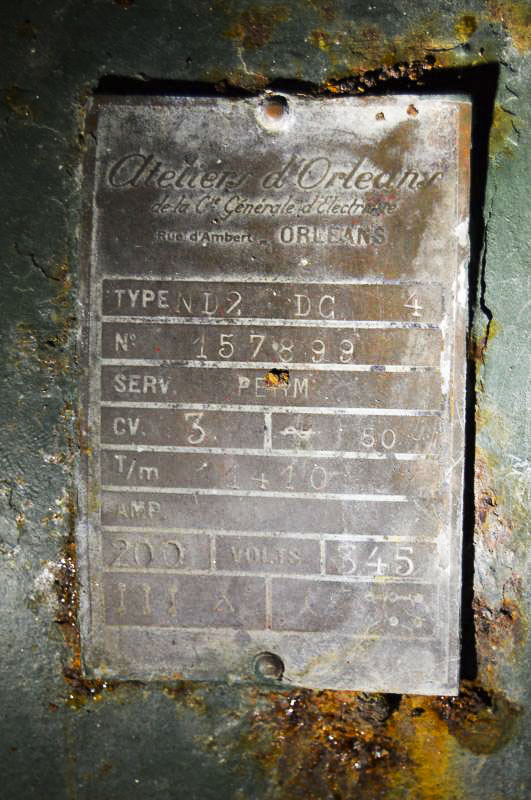 Ateliers d'Orleans
de la Cie Générale d'Electricité
Rue d'Ambert _ ORLEANS
TYPE ND2 DG 4
N° 157899
SERV. PERM
CV. 3 50
T/m 1410
AMP.
200 VOLTS 345